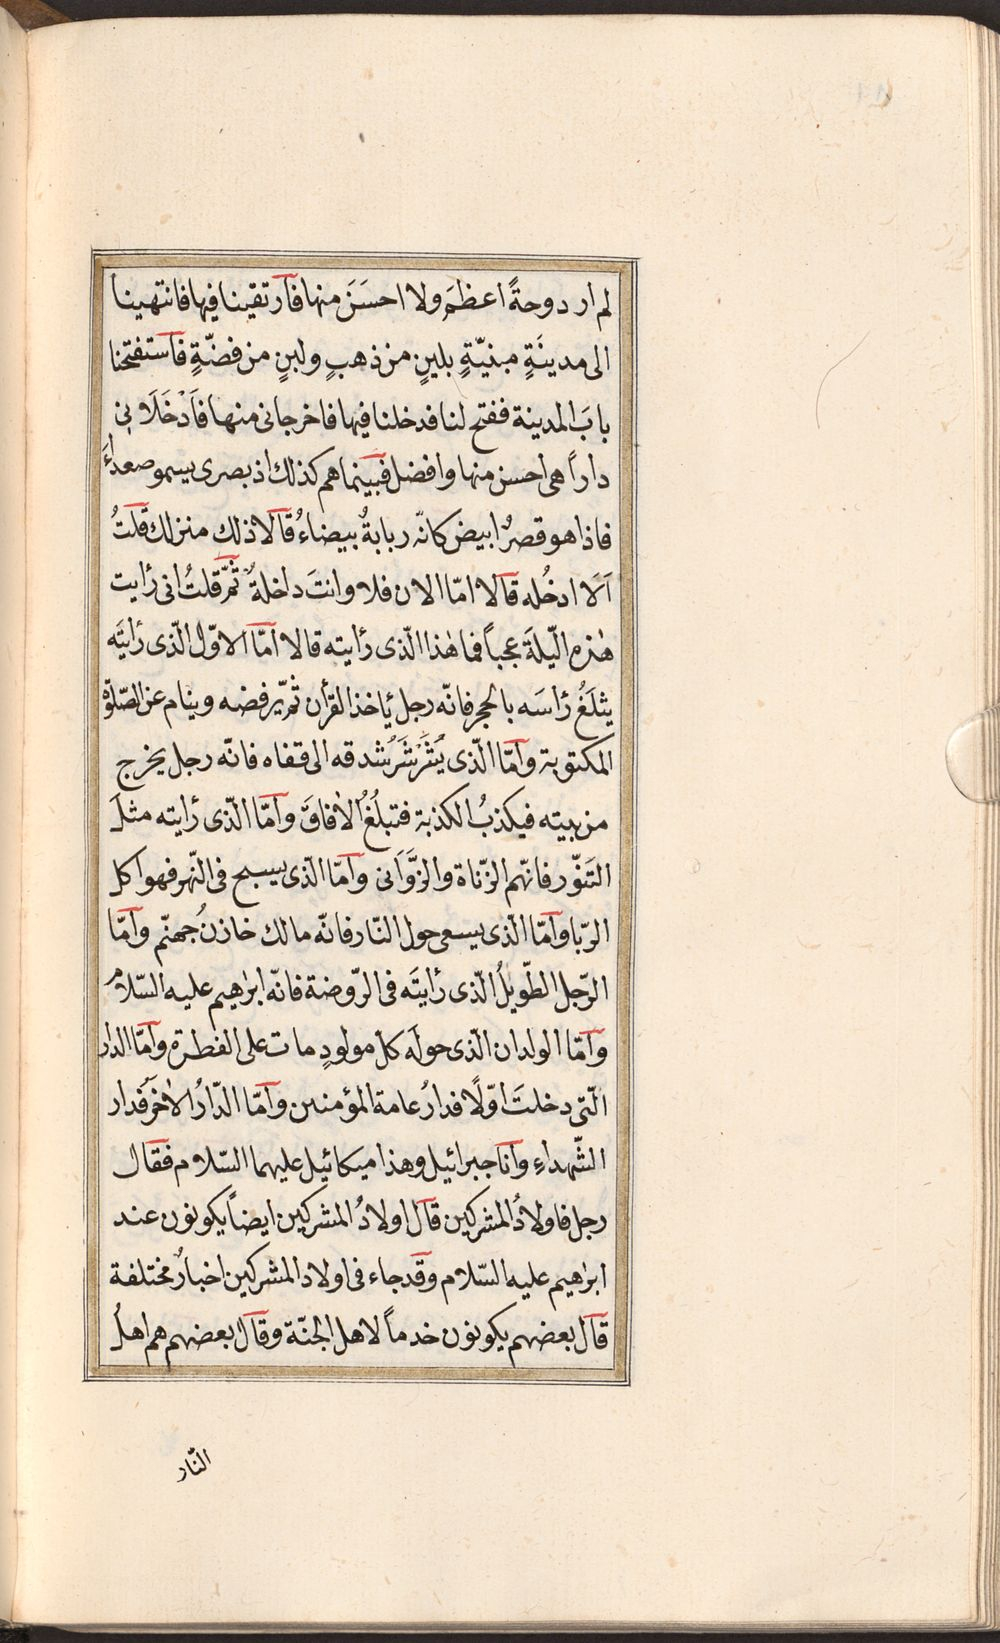 لم ار دوحةً اعظمَ ولا احسَنَ منها فارتقينا فيها فانتهينا
الى مدينَةٍ مبنيّةٍ بلبنٍ من ذهبٍ ولبنٍ من فضّةٍ فاستفتحنا
بابَ المدينة ففتح لنا فدخلنا فيها فاخرجانى منها فاَدْخَلَانِى
داراً هى احسن منها وافضل فبينما هم كذلك اذ بصرى يسمو صعداءَ
فاذا هو قصرٌ ابيض كانّه ربابةٌ بيضاءُ قالا ذلك منزلك قلتُ
اَلَا ادخُله قالا امّا الان فلا وانتَ داخلهٌ ثمّ قلتُ انى رأيت
هٰذه اللّيلةَ عجباً فما هٰذا الّذى رأيته قالا امّا الاوّل الّذى رأيتَه
يثلَغُ رأسَه بالحجر فانّه رجل يأخذ القرأن ثمّ يرفضه وينام عن الصّلوٰة
المكتوبة وامّا الّذى يُشَرْشَرُ شدقه الى قفاه فانّه رجل يخرج
من بيته فيكذبُ الكذبة فتبلُغُ الاٰفاقَ وامّا الّذى رأيته مثلَ
التَنّور فانّهم الزّناة والزَّوَانى وامّا الّذى يسبح فى النّهر فهو اكل
الرّبا وامّا الّذى يسعى حول النّار فانّه مالك خازنُ جهنّم وامّا
الرّجل الطّويلُ الّذى رأيتَه فى الرّوضة فانّه ابرٰهيم عليه السّلام
وامّا الولدان الّذى حوله كلّ مولودٍ مات على الفطرة وامّا الدار
الّتى دخلتَ اوّلًا فدارُ عامة المؤمنين وامّا الدّارُ الاٰخَرُ فدار
الشّهداءِ وانا جبرائيل وهذا ميكائيل عليهما السّلام فقال
رجل فاولادُ المشركين قال اولادُ المشركين ايضاً يكونون عند
ابرٰهيم عليه السّلام وقد جاء فى اولاد المشركين اخبارٌ مختلفة
قال بعضهم يكونون خدماً لاهل الجنّة وقال بعضهم هم اهلُ
النّار